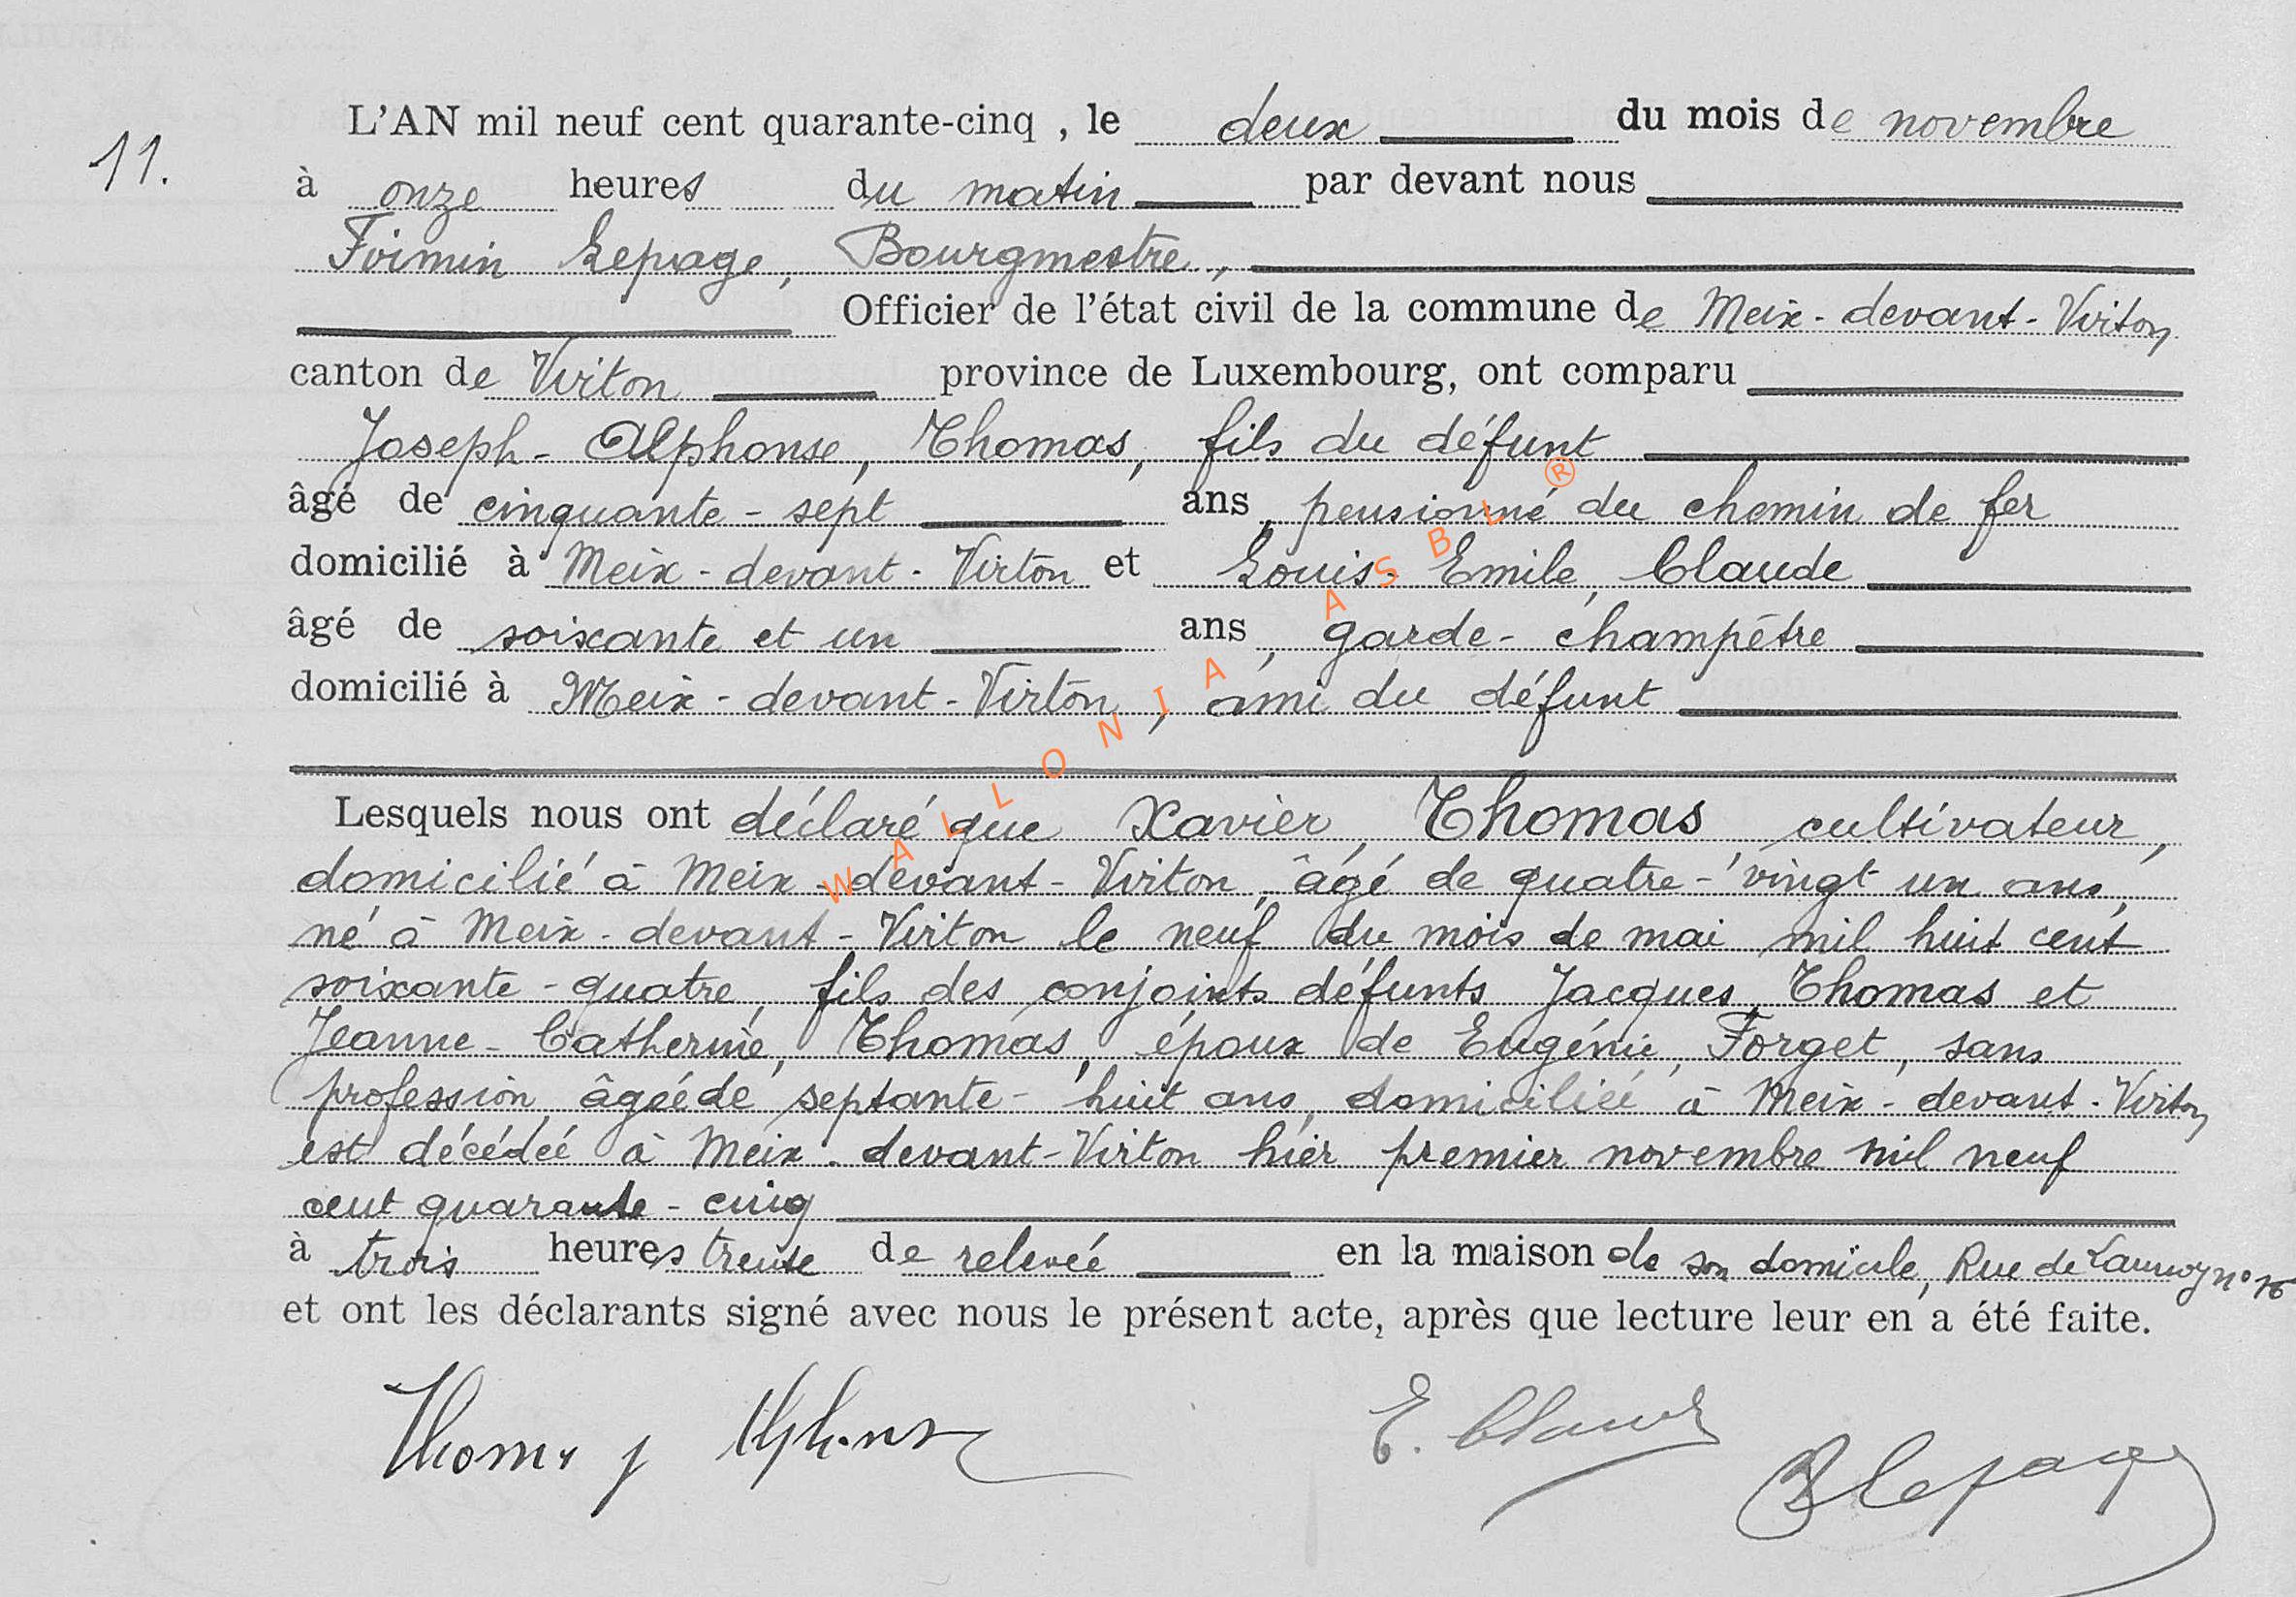 11.
L'AN mil neuf cent quarante-cinq , le deux du mois de novembre
à onze heures du matin par devant nous
Firmin Lepage, Bourgmestre,
Officier de l'état civil de la commune de Meix-devant-Virton
canton de Virton province de Luxembourg, ont comparu
Joseph-Alphonse, Thomas, fils du défunt
âgé de cinquante-sept ans, pensionné du chemin de fer
domicilié à Meix-devant-Virton et Louis-Emile, Claude
âgé de soixante et un ans, garde-champêtre
domicilié à Meix-devant-Virton, ami du défunt
Lesquels nous ont déclaré que Xavier, Thomas cultivateur,
domicilié à Meix-devant-Virton, âgé de quatre-vingt un ans,
né à Meix-devant-Virton le neuf du mois de mai mil huit cent
soixante-quatre, fils des conjoints défunts Jacques, Thomas et
Jeanne-Catherine, Thomas, époux de Eugénie, Forget, sans
profession, âgée de septante-huit ans, domiciliée à Meix-devant-Virton
est décédée à Meix-devant-Virton hier premier novembre mil neuf
cent quarante-cinq
à trois heures trente de relevée en la maison de son domicile, Rue de Launoy n°
et ont les déclarants signé avec nous le présent acte, après que lecture leur en a été faite.
Thomas j Alphonse
E. Claude
Lepage
WALLONIA ASBL ®